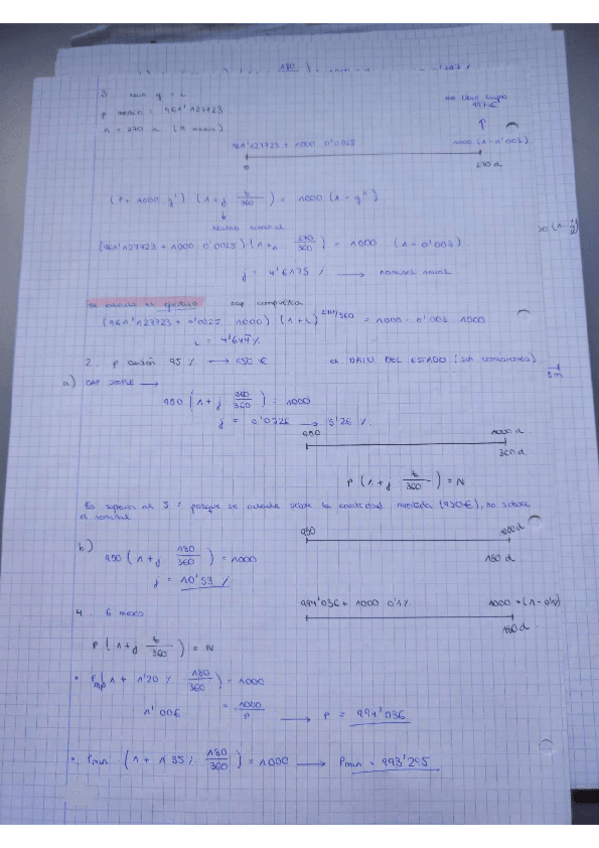 180
3
P mercado = 961'127723
n = 270 d (9 meses)
me llevo limpio
997€
961'127723 + 1000 0'0025
1000 (1-0'003)
0
270 d
(P + 1000 g') (1 + j t/360) = 1000 (1 - g'')
(961'127723 + 1000 0'0025) (1 + j 270/360) = 1000 (1 - 0'003)
j = 4'6175 % → nominal anual
Se calcula el efectivo cap compuesta
(961'127723 + 0'0025 1000) (1 + i)^270/360 = 1000 - 0'003 1000
i = 4'644%
2. P emisión 95 % → 950 € el DAIN DEL ESTADO (sin comisiones)
a) CAP SIMPLE →
950 (1 + j 360/360) = 1000
j = 0'0526 → 5'26 %
950
1000
360 d
P (1 + j t/360) = N
Es superior al 5 % porque se calcula sobre la cantidad invertida (950€), no sobre
el nominal
950
1000
180 d
b)
950 (1 + j 180/360) = 1000
j = 10'53 %
4. 6 meses
994'036 + 1000 0'1%
180 d
P (1 + j t/360) = N
• Pmp (1 + 1'20 % 180/360) = 1000
1'006 = 1000/P → P = 994'036
• Pmin (1 + 1'35 % 180/360) = 1000 → Pmin = 993'295